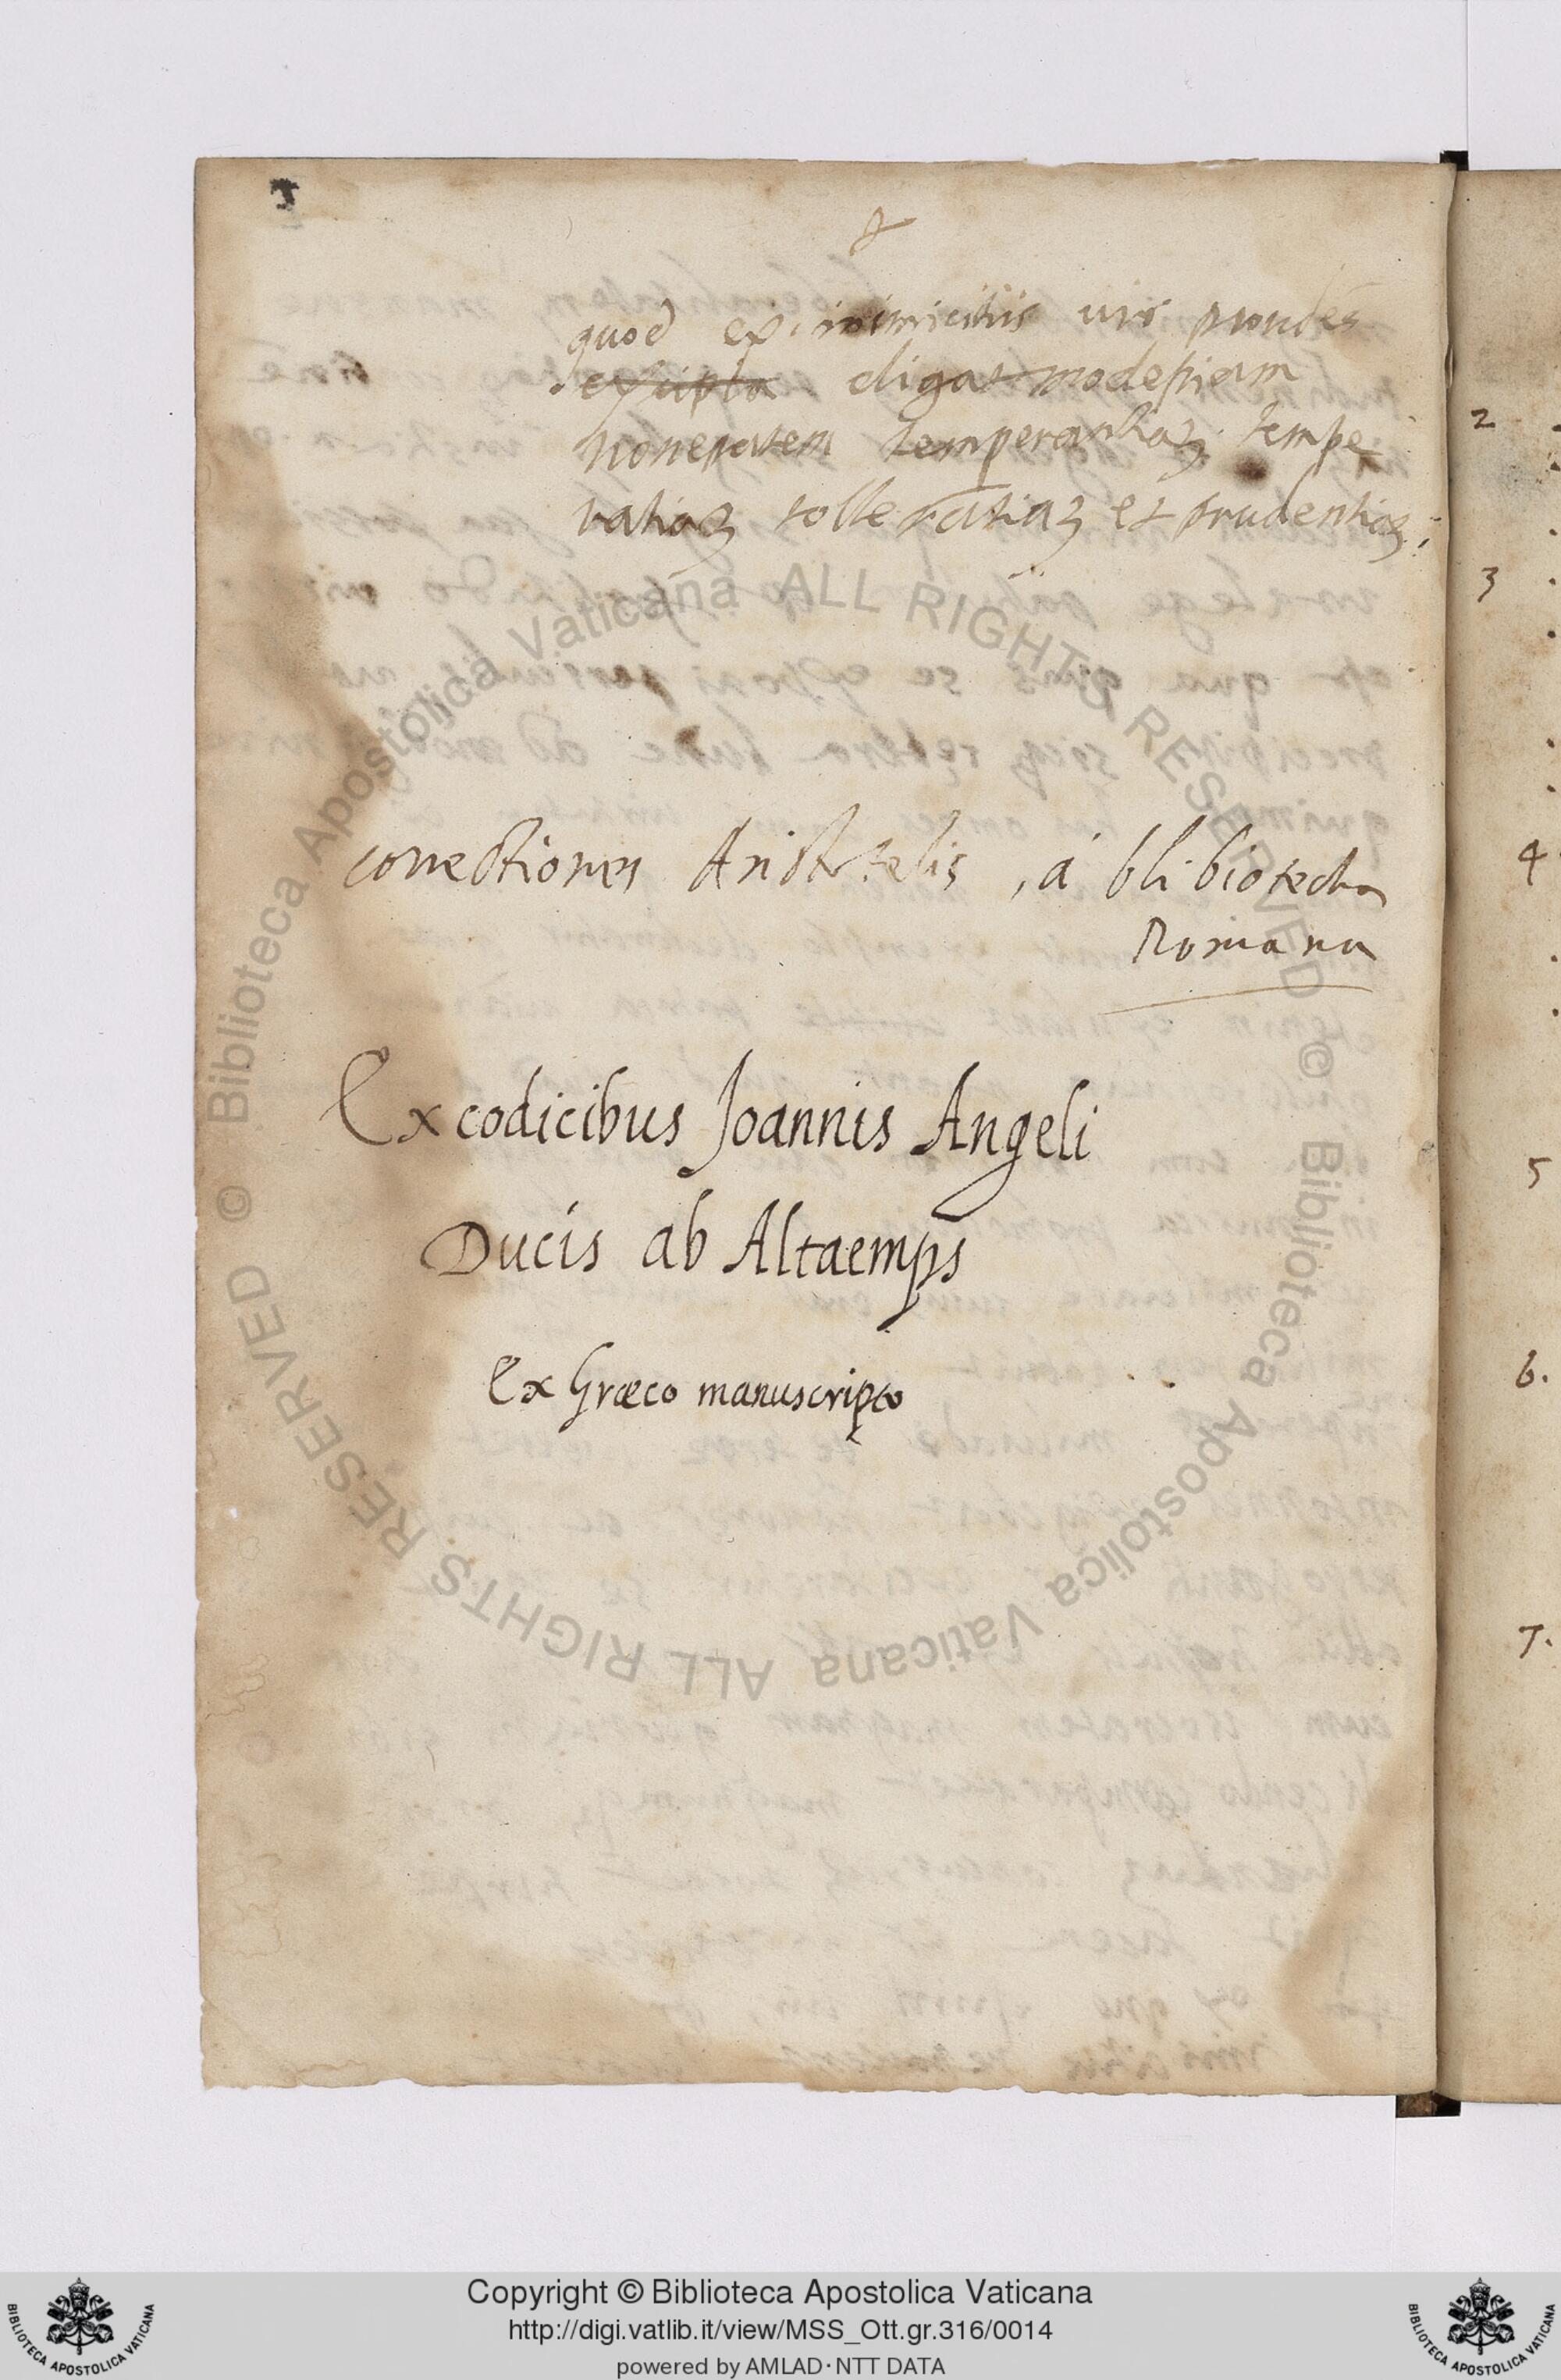 quod ex inimicitiis vir prudēs
excipta eligat modestiam
temperantiaʒ tempe
ratiaʒ tolleratiaʒ et prudentiaʒ;
correctiones Aristotelis, á blibiotecha
Romana
Ex codicibus Joannis Angeli
Ducis ab Altaemps
Ex Græco manuscripto
2
3
4
5
6.
7.
© Biblioteca Apostolica Vaticana ALL RIGHTS RESERVED © Biblioteca Apostolica Vaticana ALL RIGHTS RESERVED
Copyright © Biblioteca Apostolica Vaticana
http://digi.vatlib.it/view/MSS_Ott.gr.316/0014
powered by AMLAD·NTT DATA
BIBLIOTECA APOSTOLICA VATICANA
BIBLIOTECA APOSTOLICA VATICANA